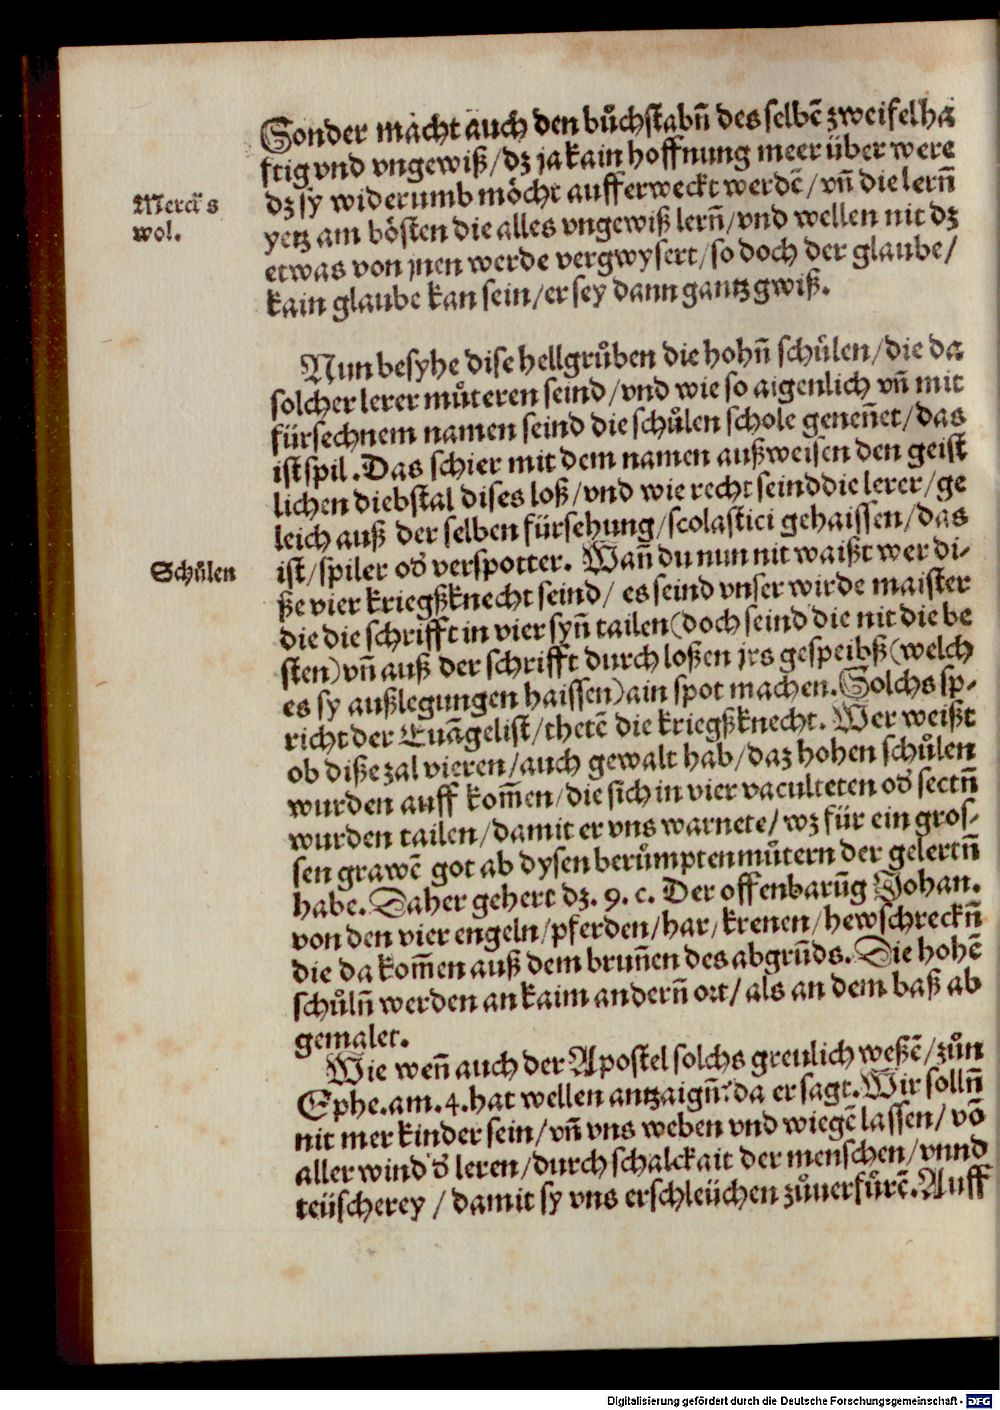 Sonder macht auch den bůchstabñ des selbẽ zweifelha
ftig vnd vngewiß/dz ja kain hoffnung meer über were
dz sy widerumb möcht aufferweckt werdẽ/vñ die lerñ
Merck's
wol.
yetz am bösten die alles vngewiß lerñ/vnd wellen nit dz
etwas von jnen werde vergwysert/so doch der glaube/
kain glaube kan sein/er sey dann gantz gwiß.
Nun besyhe dise hellgrůben die hohñ schůlen/die da
solcher lerer můteren seind/vnd wie so aigenlich vñ mit
fürsechnem namen seind die schůlen schole geneñet/das
ist spil. Das schier mit dem namen außweisen den geist
lichen diebstal dises loß/vnd wie recht seind die lerer/ge
leich auß der selben fürsehung/scolastici gehaissen/das
Schůlen
ist/spiler od' verspotter. Wañ du nun nit waißt wer di-
ße vier kriegßknecht seind/ es seind vnser wirde maister
die die schrifft in vier syñ tailen (doch seind die nit die be
sten) vñ auß der schrifft durch loßen jrs gespeibß (welch
es sy außlegungen haissen) ain spot machen. Solchs sp-
richt der Euãgelist/thetẽ die kriegßknecht. Wer weißt
ob diße zal vieren/auch gewalt hab/daz hohen schůlen
wurden auff kom̃en/die sich in vier vaculteten od' sectñ
wurden tailen/damit er vns warnete/wz für ein gros-
sen grawẽ got ab dysen berůmpten můtern der gelertñ
habe. Daher gehert dz. 9. c. Der offenbarũg Johan.
von den vier engeln/pferden/har/krenen/hewschreckñ
die da kom̃en auß dem bruñen des abgrũds. Die hohẽ
schůlñ werden an kaim anderñ ort/als an dem baß ab
gemalet.
Wie weñ auch der Apostel solchs greulich weßẽ/zůn
Ephe. am. 4. hat wellen antzaigñ: da er sagt. Wir sollñ
nit mer kinder sein/vñ vns weben vnd wiegẽ lassen/võ
aller wind d' leren/durch schalckait der menschen/vnnd
teüscherey / damit sy vns erschleüchen zůuerfůrẽ. Auff
Digitalisierung gefördert durch die Deutsche Forschungsgemeinschaft - DFG